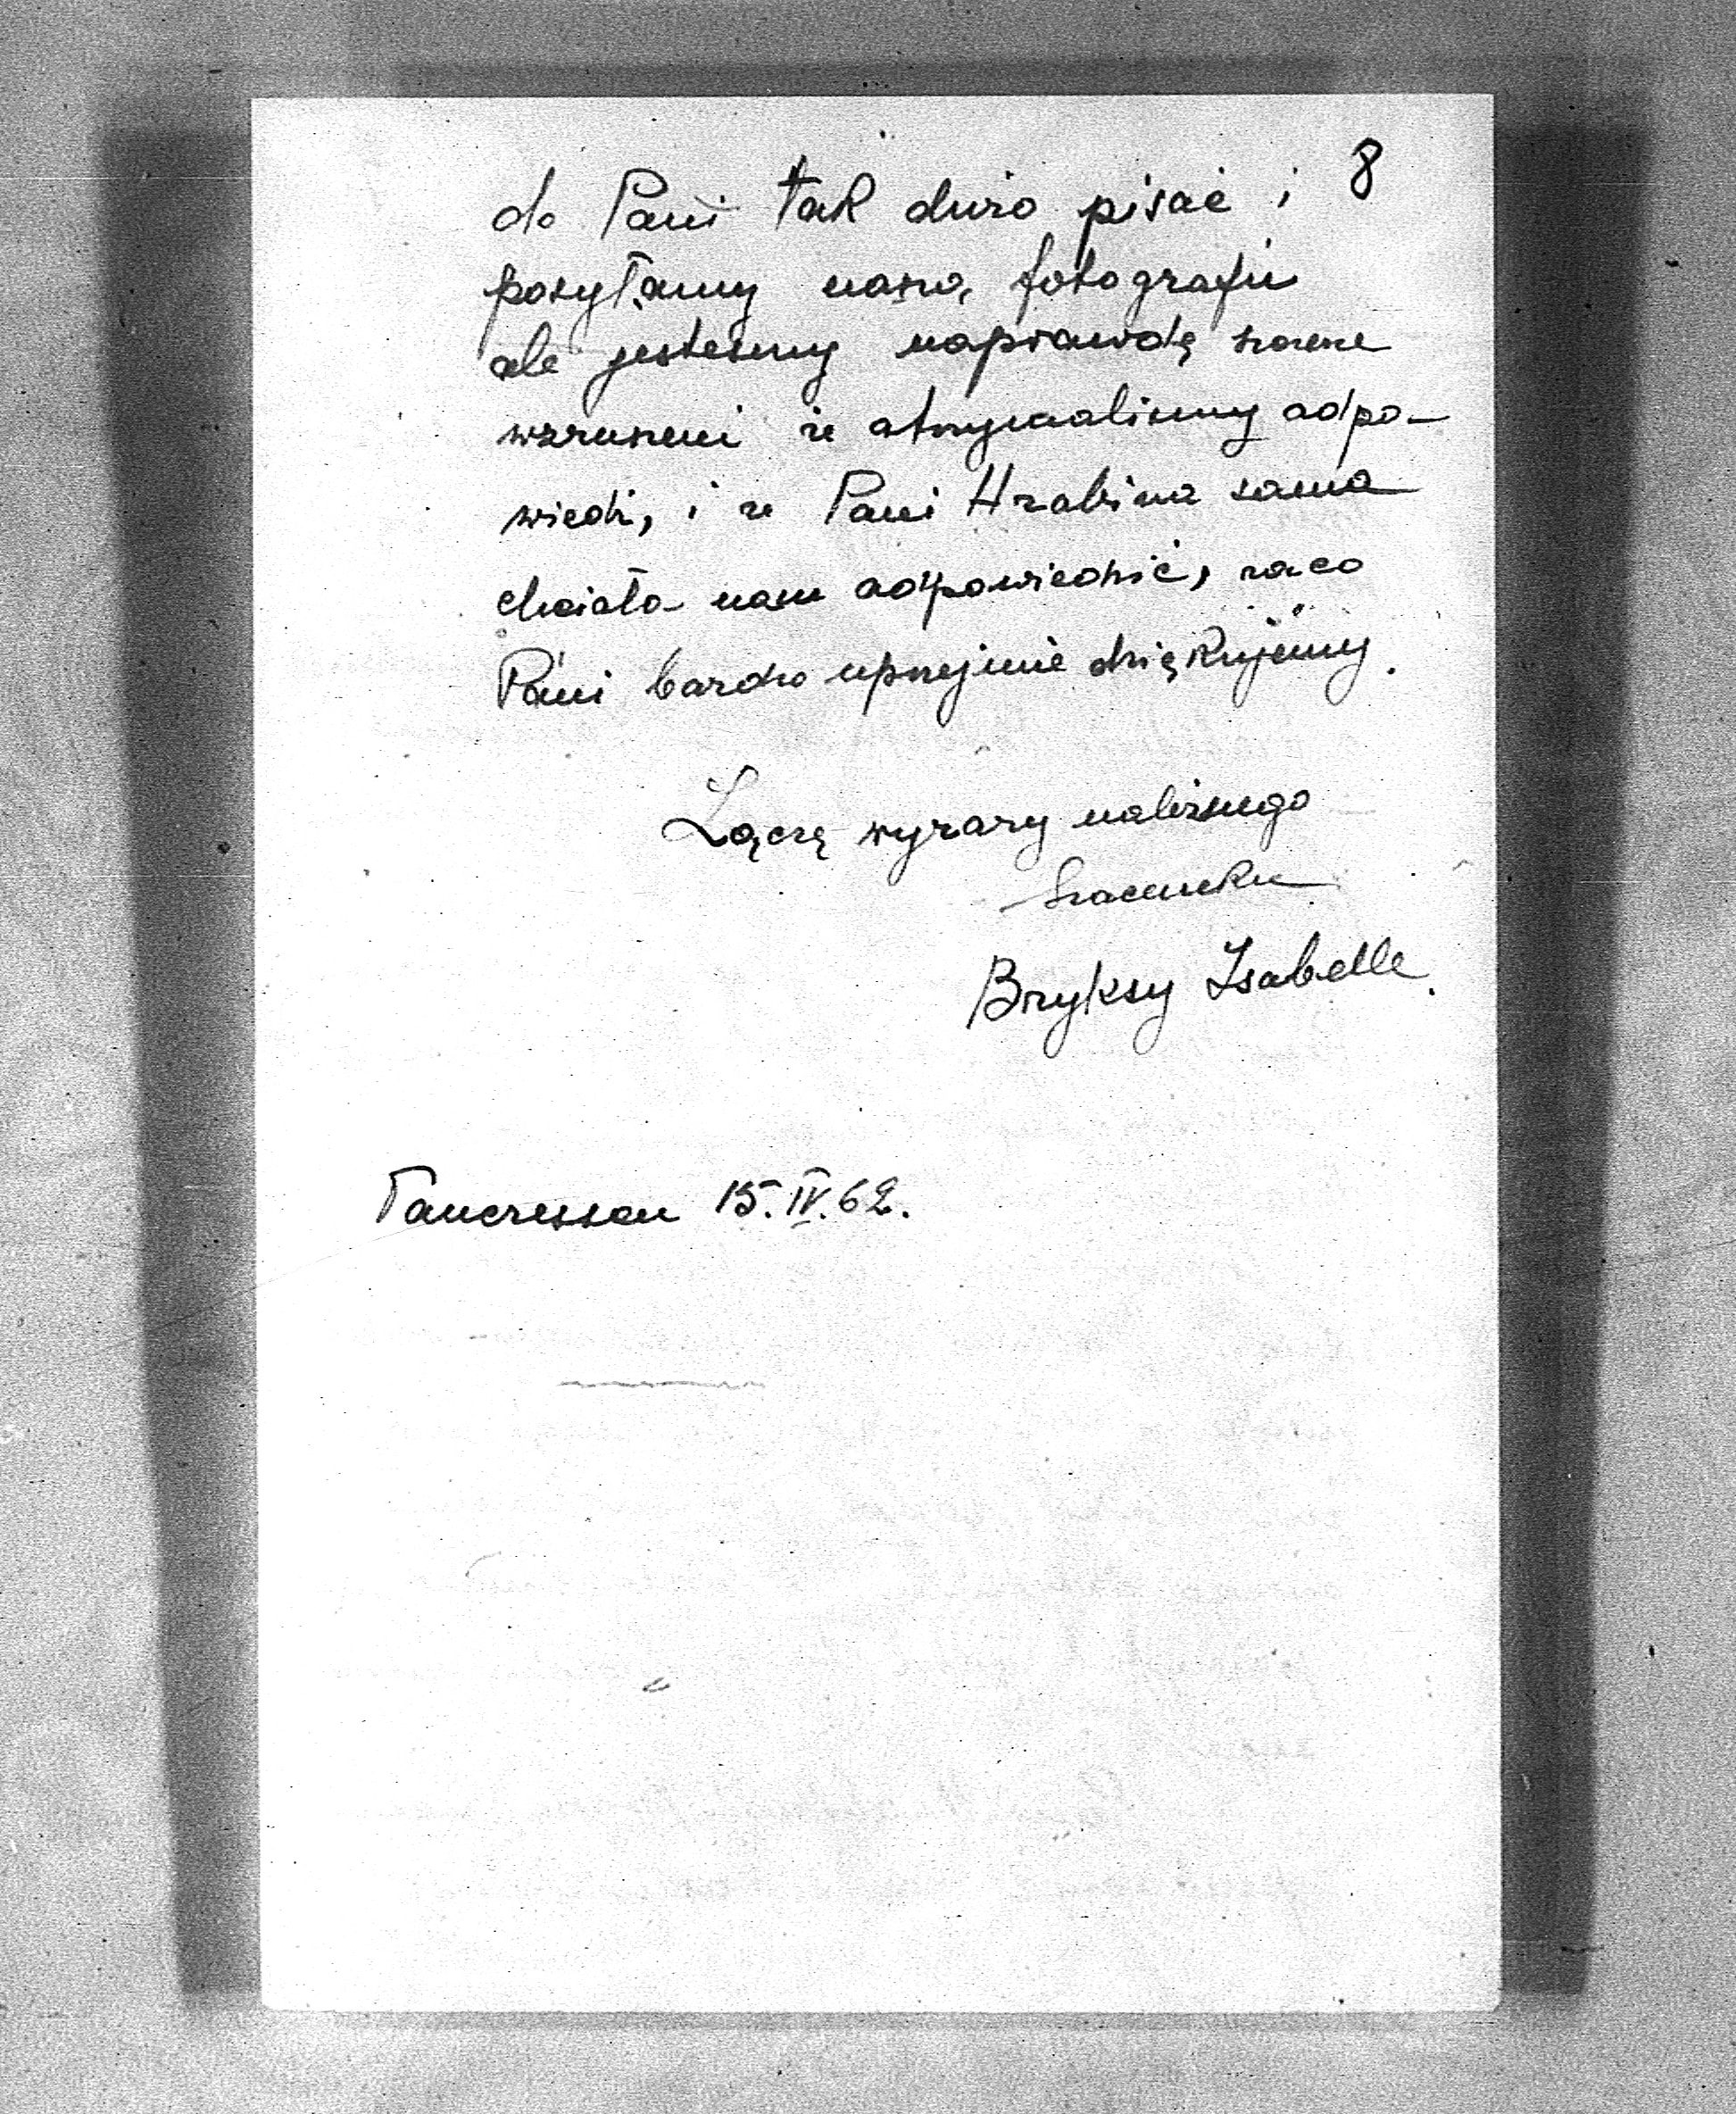 8
do Pani tak dużo pisać i
posyłamy naszą fotografii
ale jestesmy naprawdę szczere
wzruszeni że otrzymalismy odpo-
wiedź, i że Pani Hrabina sama
chciała nam odpowiedzić, zaco
Pani bardzo uprzejmie dziękujemy.
Łączę wyrazy należnego
szacunku
Bryksy Isabelle.
Vaucresson 15.IV.62.